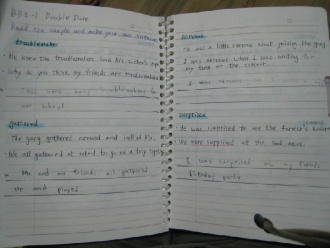 BB3-1 Double Dare
Read the sample and make your own sentence
troublemaker
He knew the troublemakers from his school
Why do you think my friends are troublemakers
There were many troublemakers in
our school
gathered
The gang gathered around and called his
We all gathered at school to go on a trip
Me and my friends all gathered
up and played
nervous
I'm not a little nervous about joining the gang
I was nervous when I was waiting for
my turn at the
I was nervous
surprised
He was surprised to see the farmer's
We were surprised at the news above.
I was surprised at my friend's
birthday party